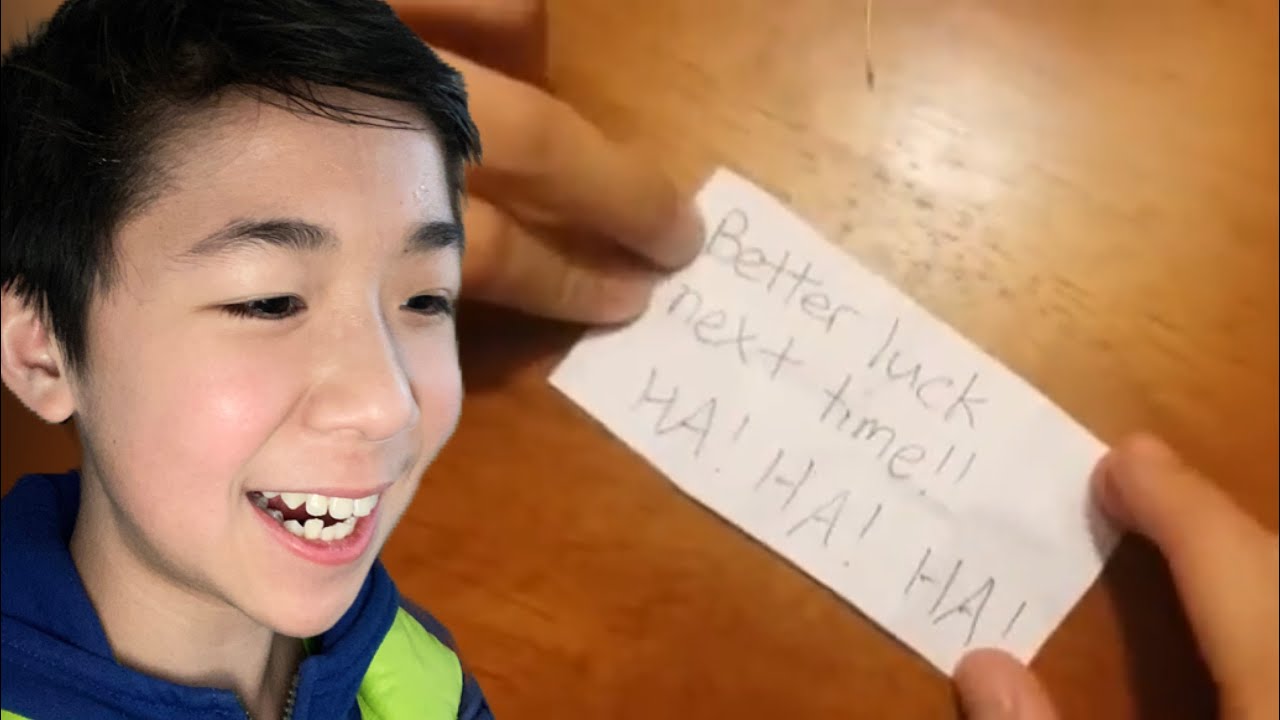 Better luck
next time!!
HA! HA! HA!